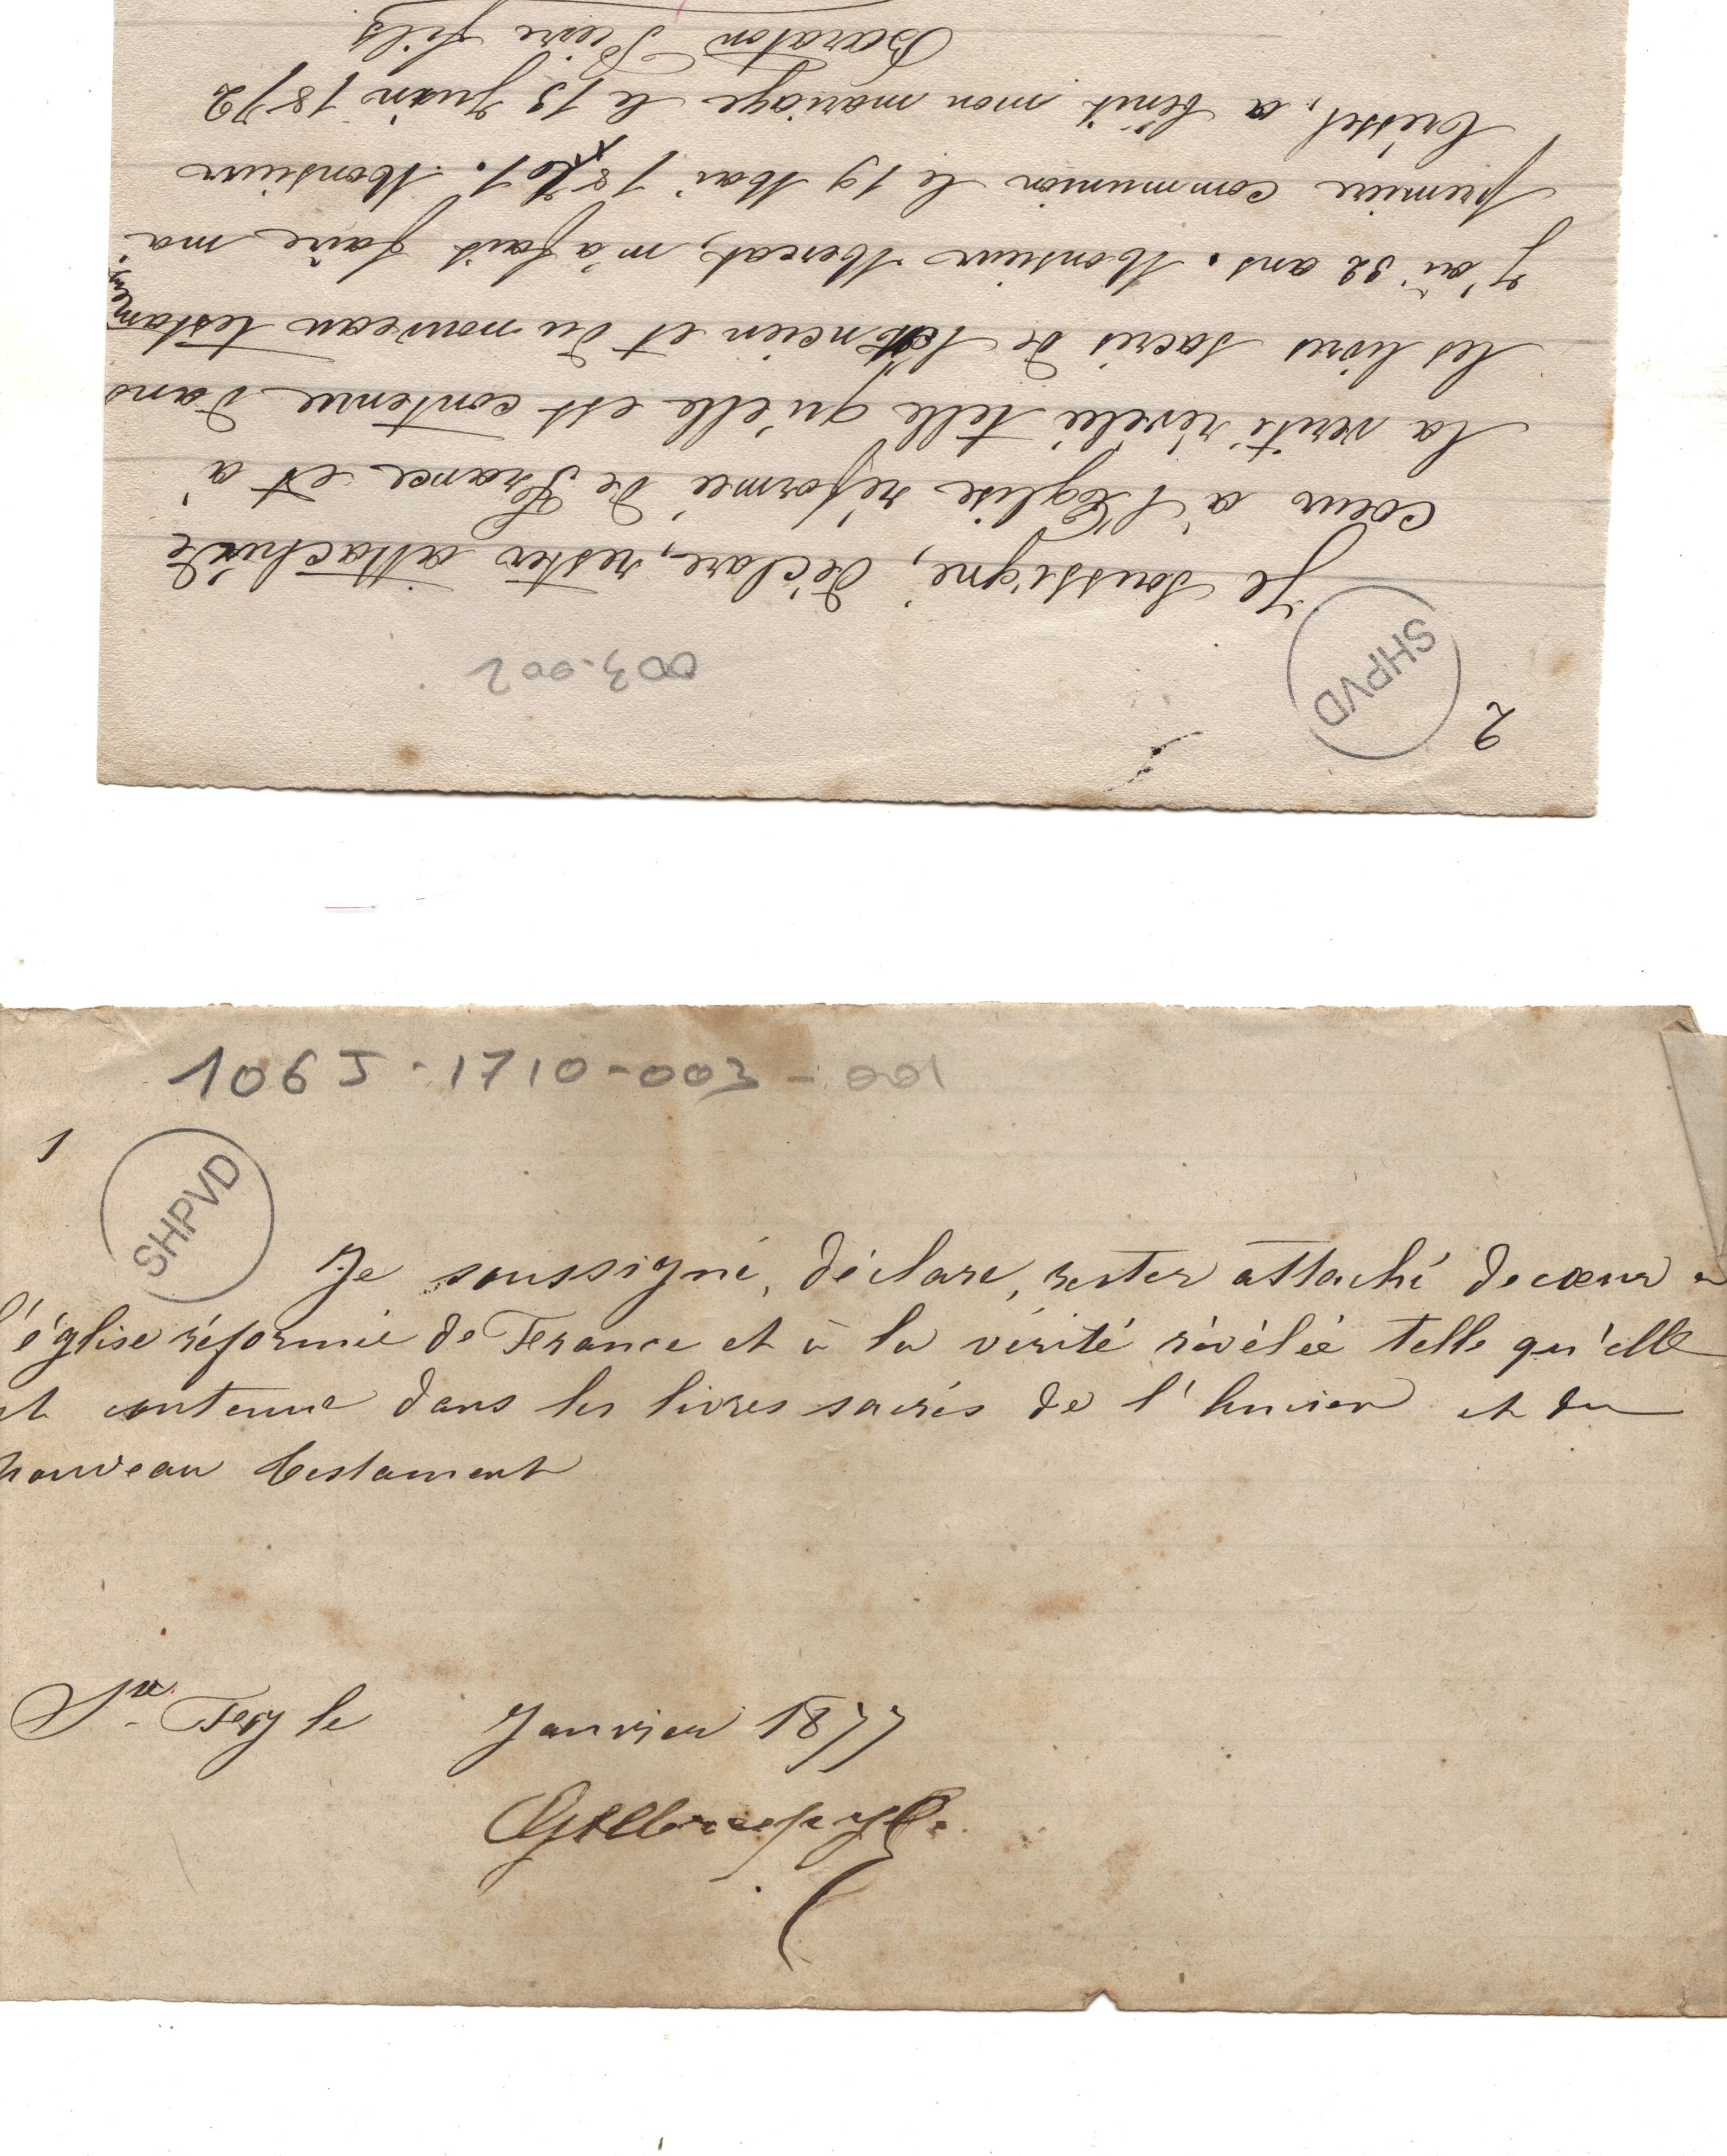 2
SHPVD
003.002
Je soussigné, déclare, rester attaché de
coeur à l'Eglise réformée de France et à
la verité révélée telle qu'elle est contenue dans
les livres sacrés de l'Ancien et du nouveau testament
J'ai 32 ans. Monsieur m'a fait faire ma
première communion le 19 Mai 1861. Monsieur
a bénit mon mariage le 13 Juin 1872
Baraton Pierre fils
106J-1710-003-001
1
SHPVD
Je soussigné, déclare, rester attaché de cœur à
l'église réformée de France et à la vérité révélée telle qu'elle
st contenue dans les livres sacrés de l'Ancien et du
nouveau testament
Ste Foy le Janvier 1877